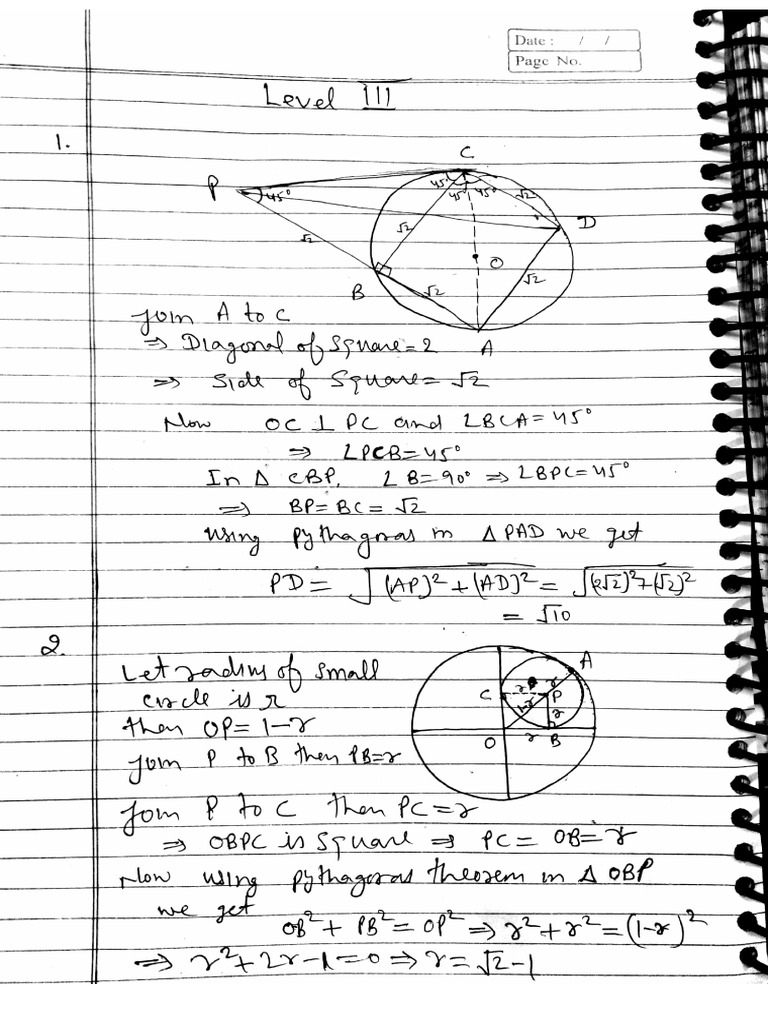 Date : / /
Page No.
Level III
1.
C
P
45°
45°
45°
45°
√2
D
√2
√2
O
√2
B
√2
A
Join A to C
⇒ Diagonal of Square = 2
⇒ Side of Square = √2
Now OC ⊥ PC and ∠BCA = 45°
⇒ ∠PCB = 45°
In Δ CBP, ∠B = 90° ⇒ ∠BPC = 45°
⇒ BP = BC = √2
Using Pythagoras in Δ PAD we get
PD = √(AP)² + (AD)² = √(2√2)² + (√2)²
= √10
2.
A
Let radius of small
circle is r
C
r
r
P
1-r
r
then OP = 1-r
O
r
B
Join P to B then PB = r
Join P to C then PC = r
⇒ OBPC is square ⇒ PC = OB = r
Now using pythagoras theorem in Δ OBP
we get
OB² + PB² = OP² ⇒ r² + r² = (1-r)²
⇒ r² + 2r - 1 = 0 ⇒ r = √2 - 1